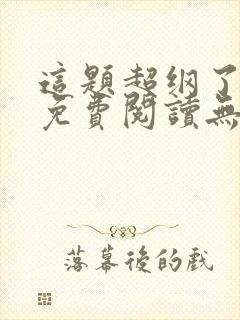 這題超纲了
免費閱讀無
落幕後的戲